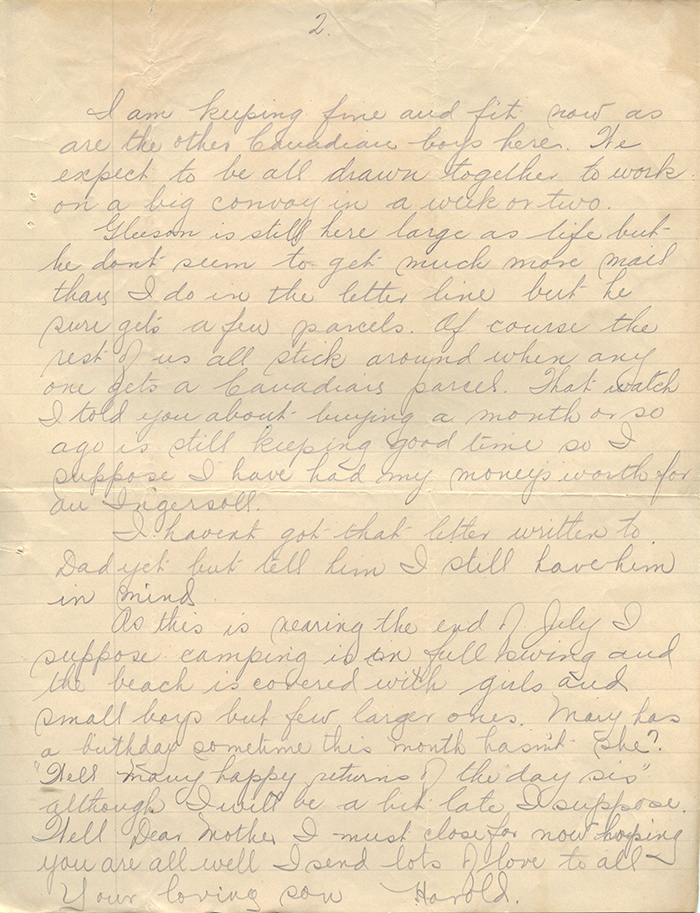 2.
I am keeping fine and fit now as
are the other Canadian boys here. We
expect to be all drawn together to work
on a big convoy in a week or two.
Gleeson is still here large as life but
he dont seem to get much more mail
than I do in the letter line but he
sure gets a few parcels. Of course the
rest of us all stick around when any
one gets a Canadian parcel. That watch
I told you about buying a month or so
ago is still keeping good time so I
suppose I have had my moneys worth for
an Ingersoll.
I havent got that letter written to
Dad yet but tell him I still have him
in mind
As this is nearing the end of July I
suppose camping is in full swing and
the beach is covered with girls and
small boys but few larger ones. Mary has
a birthday sometime this month hasn't she?
"Well many happy returns of the day sis"
although I will be a bit late I suppose.
Well Dear Mother I must close for now hoping
you are all well I send lots of love to all
Your loving son Harold.